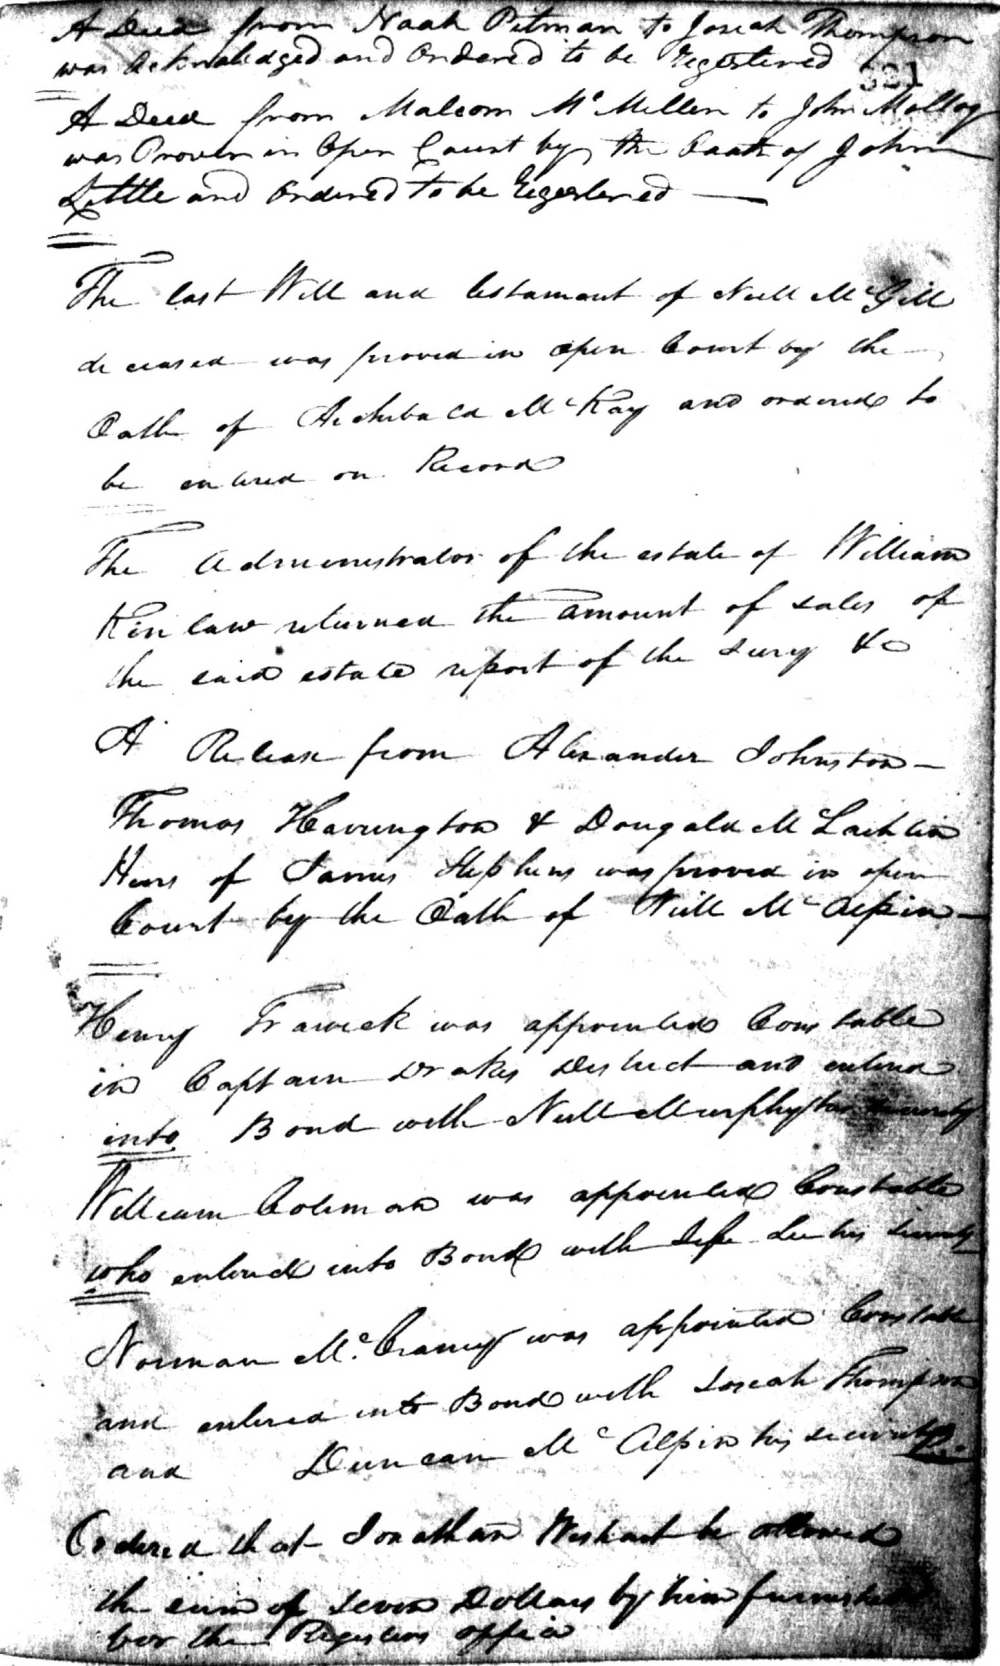 A Deed from Noah Pitman to Josiah Thompson
was Acknowledged and Ordered to be Registered
321
A Deed from Malcom Mc Millen to John Malloy
was Proven in Open Court by the Oath of John
Little and Ordered to be Registered
The last Will and testament of Neill McGill
deceased was proved in open Court by the
Oath of Archibald McKay and ordered to
be entered on Record
The Administrator of the estate of William
Kinlaw returned the amount of sales of
the said estate report of the Jury &c
A Release from Alexander Johnston
Thomas Harrington & Dougald McLachlin
Heirs of James Stephens was proved in open
Court by the Oath of Neill McAlpin
Henry Traweek was appointed Constable
in Captain Drakes District and entered
into Bond with Neill Murphy his security
William Coleman was appointed Constable
who entered into Bond with Lee his security
Norman Mc Craney was appointed Constable
and entered into Bond with Josiah Thompson
and Duncan McAlpin his security
Ordered that Jonathan Wishart be allowed
the sum of seven Dollars by him furnished
for the Registers office